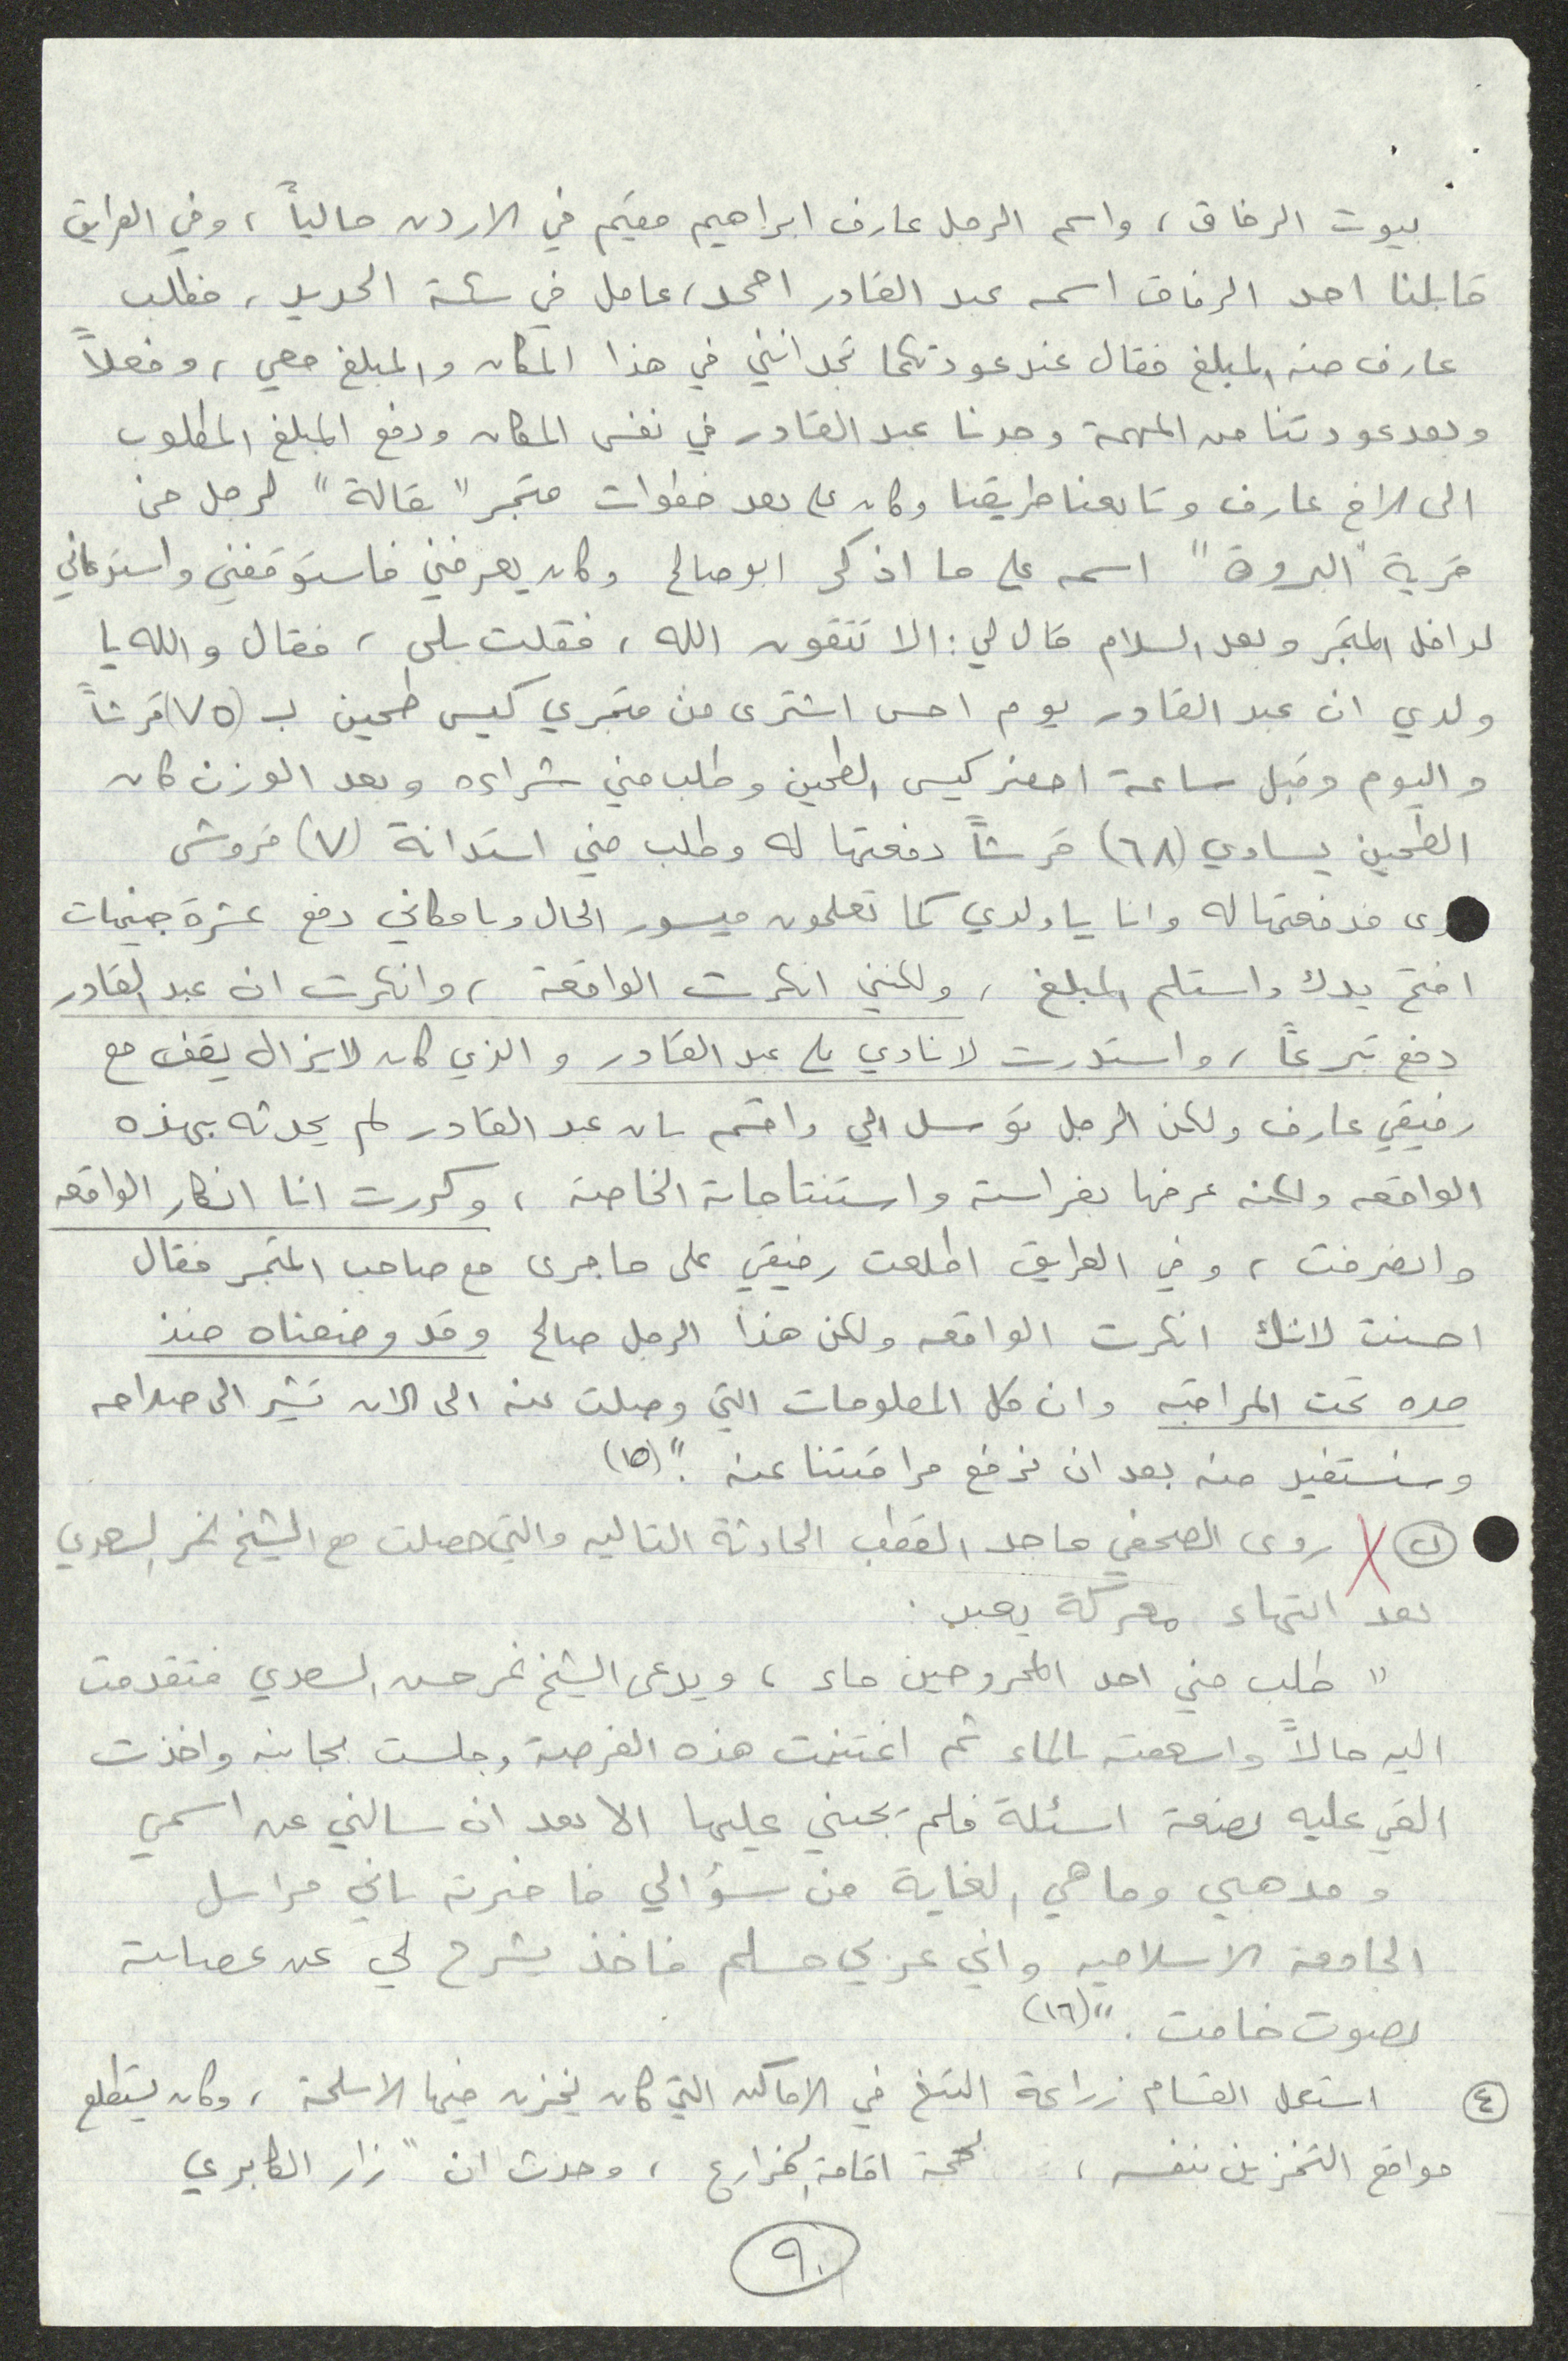 بيوت الرفاق ، واسم الرجل عارف ابراهيم مقيم في الاردن حالياً ، وفي الطريق
قابلنا احد الرفاق اسمه عبد القادر احمد ، عامل في سكة الحديد ، فطلب
عارف منه المبلغ فقال عند عودتكما تجدانني في هذا المكان والمبلغ معي ، وفعلاً
وبعد عودتنا من المهمة وجدنا عبد القادر في نفس المكان ودفع المبلغ المطلوب
الى الاخ عارف وتابعنا طريقنا وكان على بعد خطوات متجر " بقالة " لرجل من
قرية "البروة" اسمه على ما اذكر ابو صالح وكان يعرفني فاستوقفني واستدعاني
لداخل المتجر وبعد السلام قال لي : الا تتقون الله ، فقلت بلى ، فقال والله يا
ولدي ان عبد القادر يوم امس اشترى من متجري كيس طحين بـ (٧٥) قرشاً
واليوم وقبل ساعة احضر كيس الطحين وطلب مني شراءه وبعد الوزن كان
الطحين يساوي (٦٨) قرشاً دفعتها له وطلب مني استدانة (٧) قروش
فدفعتها له وانا يا ولدي كما تعلمون ميسور الحال وبامكاني دفع عشرة جنيهات
افتح يدك واستلم المبلغ ، ولكنني انكرت الواقعة ، وانكرت ان عبد القادر
دفع تبرعاً ، واستدرت لانادي على عبد القادر والذي كان لايزال يقف مع
رفيقي عارف ولكن الرجل توسل الي واقسم بان عبد القادر لم يحدثه بهذه
الواقعه ولكنه عرفها بفراسته واستنتاجاته الخاصة ، وكررت انا انكار الواقعه
وانصرفت ، وفي الطريق اطلعت رفيقي على ماجرى مع صاحب المتجر فقال
احسنت لانك انكرت الواقعه ولكن هذا الرجل صالح وقد وضعناه منذ
مده تحت المراقبه وان كل المعلومات التي وصلت عنه الى الان تشير الى صلاحه
وسنستفيد منه بعد ان نرفع مراقبتنا عنه . " (١٥)
روى الصحفي ماجد القطب الحادثة التاليه والتي حصلت مع الشيخ نمر السعدي
بعد انتهاء معركة يعبد :
" طلب مني احد المجروحين ماء ، ويدعى الشيخ نمر حسن السعدي فتقدمت
اليه حالاً واسعفته بالماء ثم اغتنمت هذه الفرصة وجلست بجانبه واخذت
القي عليه بضعة اسئلة فلم يجبني عليها الا بعد ان سالني عن اسمي
ومذهبي وماهي الغاية من سؤالي فاخبرته باني مراسل
الجامعة الاسلاميه واني عربي مسلم فاخذ يشرح لي عن عصابته
بصوت خافت . " (١٦)
(٤) استعمل القسام زراعة التبغ في الاماكن التي كان يخزن فيها الاسلحة ، وكان يستطلع
مواقع التخزين بنفسه ، بحجة اقامة المزارع ، وحدث ان " زار الكابري
٩٠